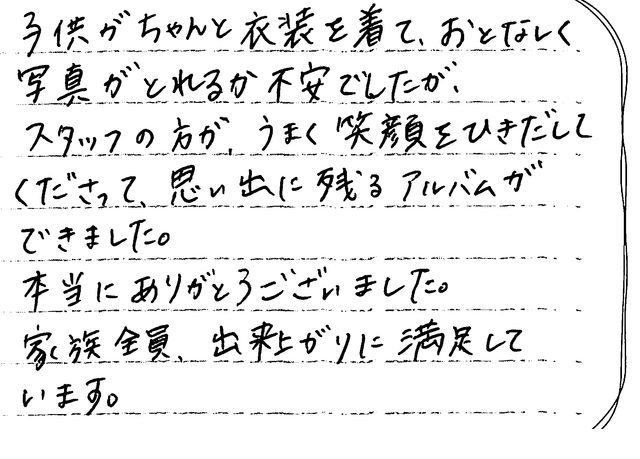 子供がちゃんと衣装を着て、おとなしく
写真がとれるか不安でしたが、
スタッフの方が、うまく笑顔をひきだして
くださって、思い出に残るアルバムが
できました。
本当にありがとうございました。
家族全員、出来上がりに満足して
います。